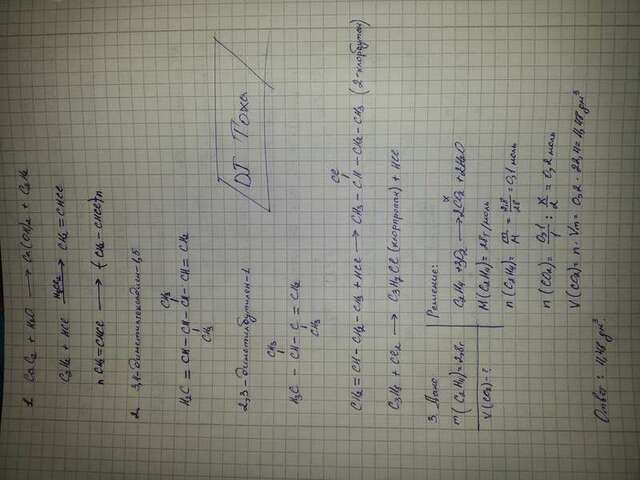 1. CaC₂ + H₂O ⟶ Ca(OH)₂ + C₂H₂
C₂H₂ + HCl —HgCl₂→ CH₂ = CHCl
n CH₂ = CHCl ⟶ (CH₂ - CHCl)n
2. 3,4-диметилгексадиен-1,5
CH₃
H₂C = CH - CH - CH - CH = CH₂
CH₃
2,3-диметилбутилен-1
CH₃
H₃C - CH - C = CH₂
CH₃
DJ Тоха
Cl
CH₂ = CH - CH₂ - CH₃ + HCl ⟶ CH₃ - CH - CH₂ - CH₃ (2-хлорбутан)
C₃H₈ + Cl₂ ⟶ C₃H₇Cl (хлорпропан) + HCl
3. Дано
m(C₂H₄) = 2,8г
V(CO₂) - ?
Решение:
x
C₂H₄ + 3O₂ ⟶ 2CO₂ + 2H₂O
M(C₂H₄) = 28г/моль
n(C₂H₄) = m/M = 2,8/28 = 0,1 моль
n(CO₂) = 0,1/1 : x/2 = 0,2 моль
V(CO₂) = n · Vm = 0,2 · 22,4 = 4,48 дм³
Ответ: 4,48 дм³.